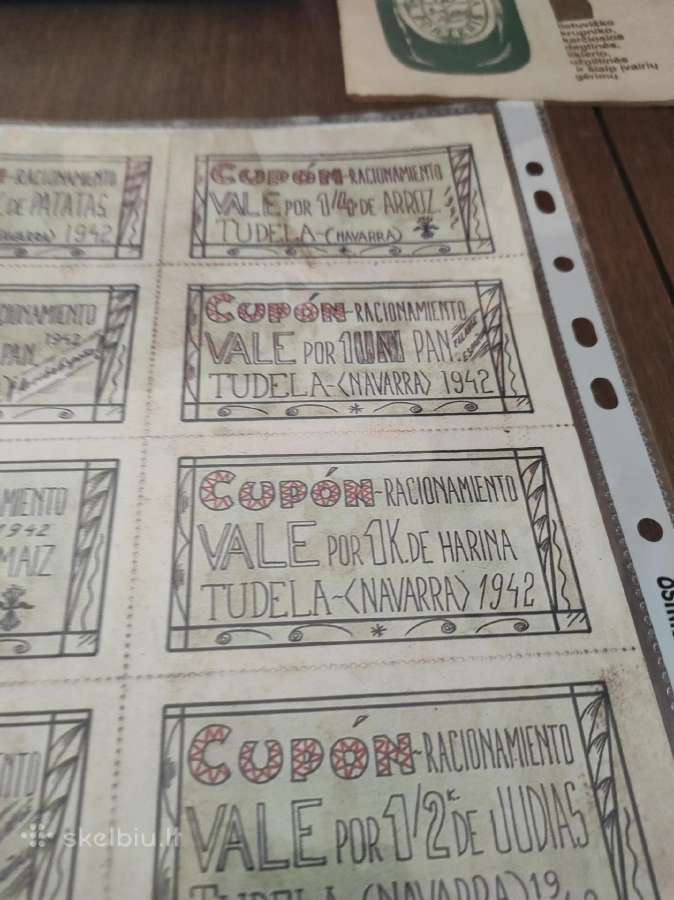 lietuviško
krupniko,
karčiosios
degtinės,
likerio,
užpiltinės
ir šiaip įvairių
gėrimų
-RACIONAMIENTO
DE PATATAS
1942
CUPÓN-RACIONAMIENTO
VALE POR 1/4 DE ARROZ.
TUDELA-(NAVARRA)
1942
PAN.
CUPÓN-RACIONAMIENTO
VALE POR 1 UN PAN.
TUDELA-(NAVARRA) 1942
1942
MAIZ
CUPÓN-RACIONAMIENTO
VALE POR 1K. DE HARINA
TUDELA-(NAVARRA) 1942
CUPÓN-RACIONAMIENTO
VALE POR 1/2 K DE JUDIAS
TUDELA-(NAVARRA) 19
skelbiu.lt